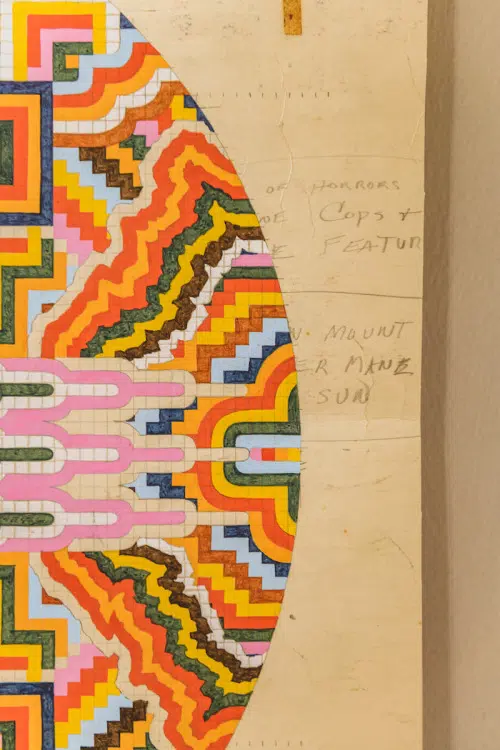 OF HORRORS
COPS +
FEATUR
MOUNT
ER MANE
SUN